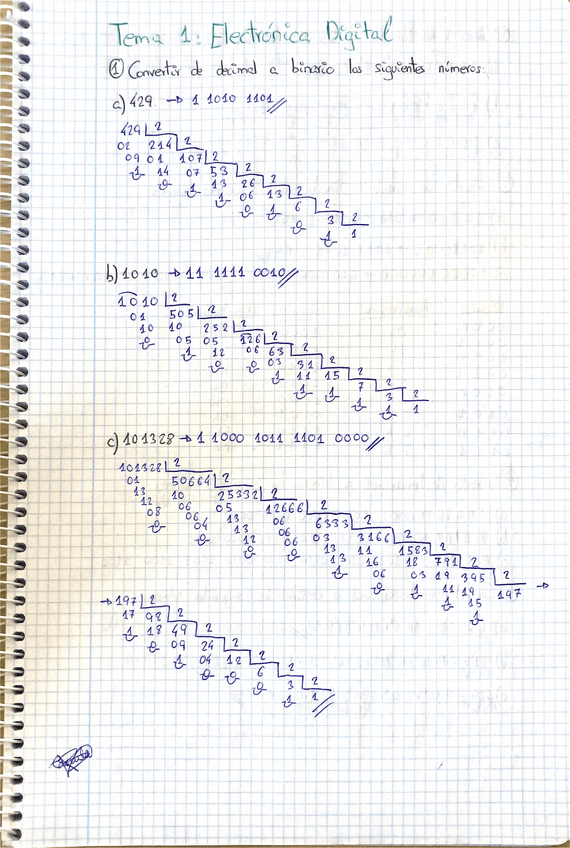 Tema 1: Electrónica Digital
① Convertir de decimal a binario los siguientes números:
a) 429 → 1 1010 1101
429 | 2
02 214 | 2
09 01 107 | 2
1 14 07 53 | 2
0 1 13 26 | 2
1 06 13 | 2
0 1 6 | 2
0 3 | 2
1 1
b) 1010 → 11 1111 0010
1010 | 2
01 505 | 2
10 10 252 | 2
0 05 05 126 | 2
1 12 06 63 | 2
0 0 03 31 | 2
1 11 15 | 2
1 1 7 | 2
1 3 | 2
1 1
c) 101328 → 1 1000 1011 1101 0000
101328 | 2
01 50664 | 2
13 10 25332 | 2
12 06 05 12666 | 2
08 06 13 06 6333 | 2
0 04 13 06 03 3166 | 2
0 12 06 13 11 1583 | 2
0 0 13 16 18 791 | 2
1 06 03 19 395 | 2
0 1 11 19 197 →
1 15
1
→ 197 | 2
17 98 | 2
1 18 49 | 2
0 09 24 | 2
1 04 12 | 2
0 0 6 | 2
0 3 | 2
1 1